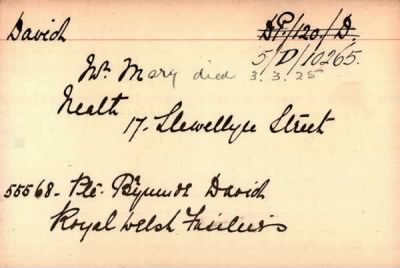 David DP/120/D.
5/D/10265.
Mr. Mary died 3.3.25
Neath
17. Llewellyn Street
55568. Pte. David
Royal Welsh Fusiliers